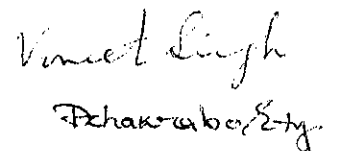 Vineet Singh
PChakraborty